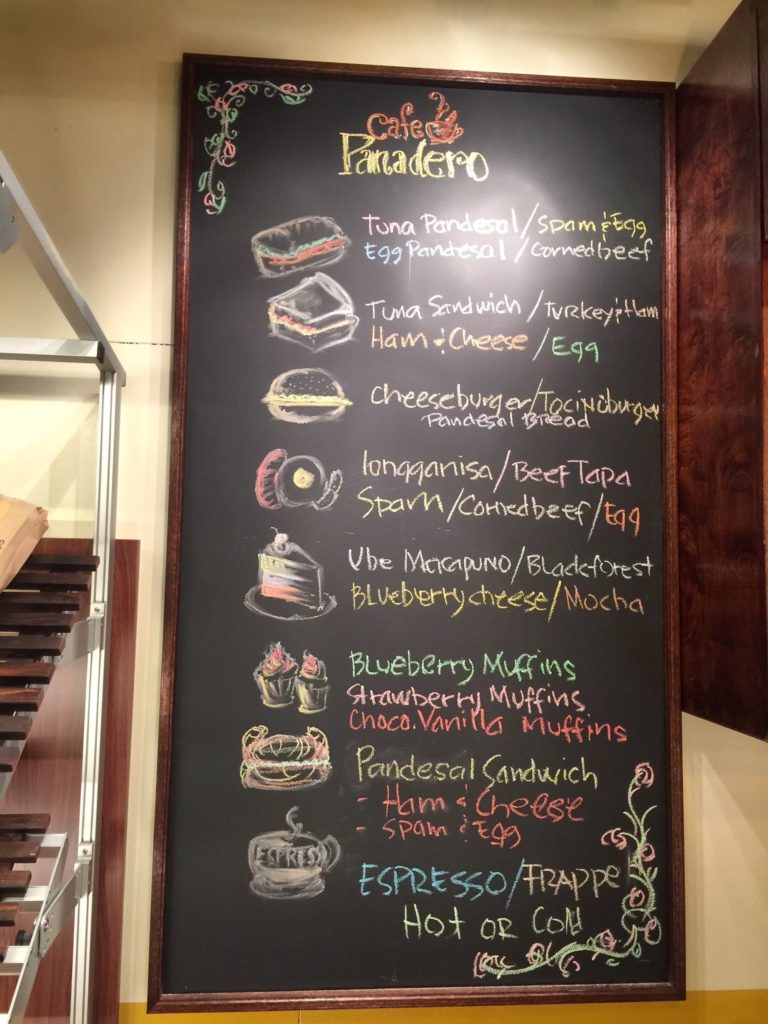 Cafe
Panadero
Tuna Pandesal/Spam & Egg
Egg Pandesal/Cornedbeef
Tuna Sandwich/Turkey & Ham
Ham & Cheese/Egg
Cheeseburger/Tocinoburger
Pandesal Bread
longganisa/Beef Tapa
Spam/Cornedbeef/Egg
Ube Macapuno/Blackforest
Blueberrycheese/Mocha
Blueberry Muffins
Strawberry Muffins
Choco.Vanilla Muffins
Pandesal Sandwich
- Ham & Cheese
- Spam & Egg
ESPRESSO
ESPRESSO/FRAPPE
Hot or Cold